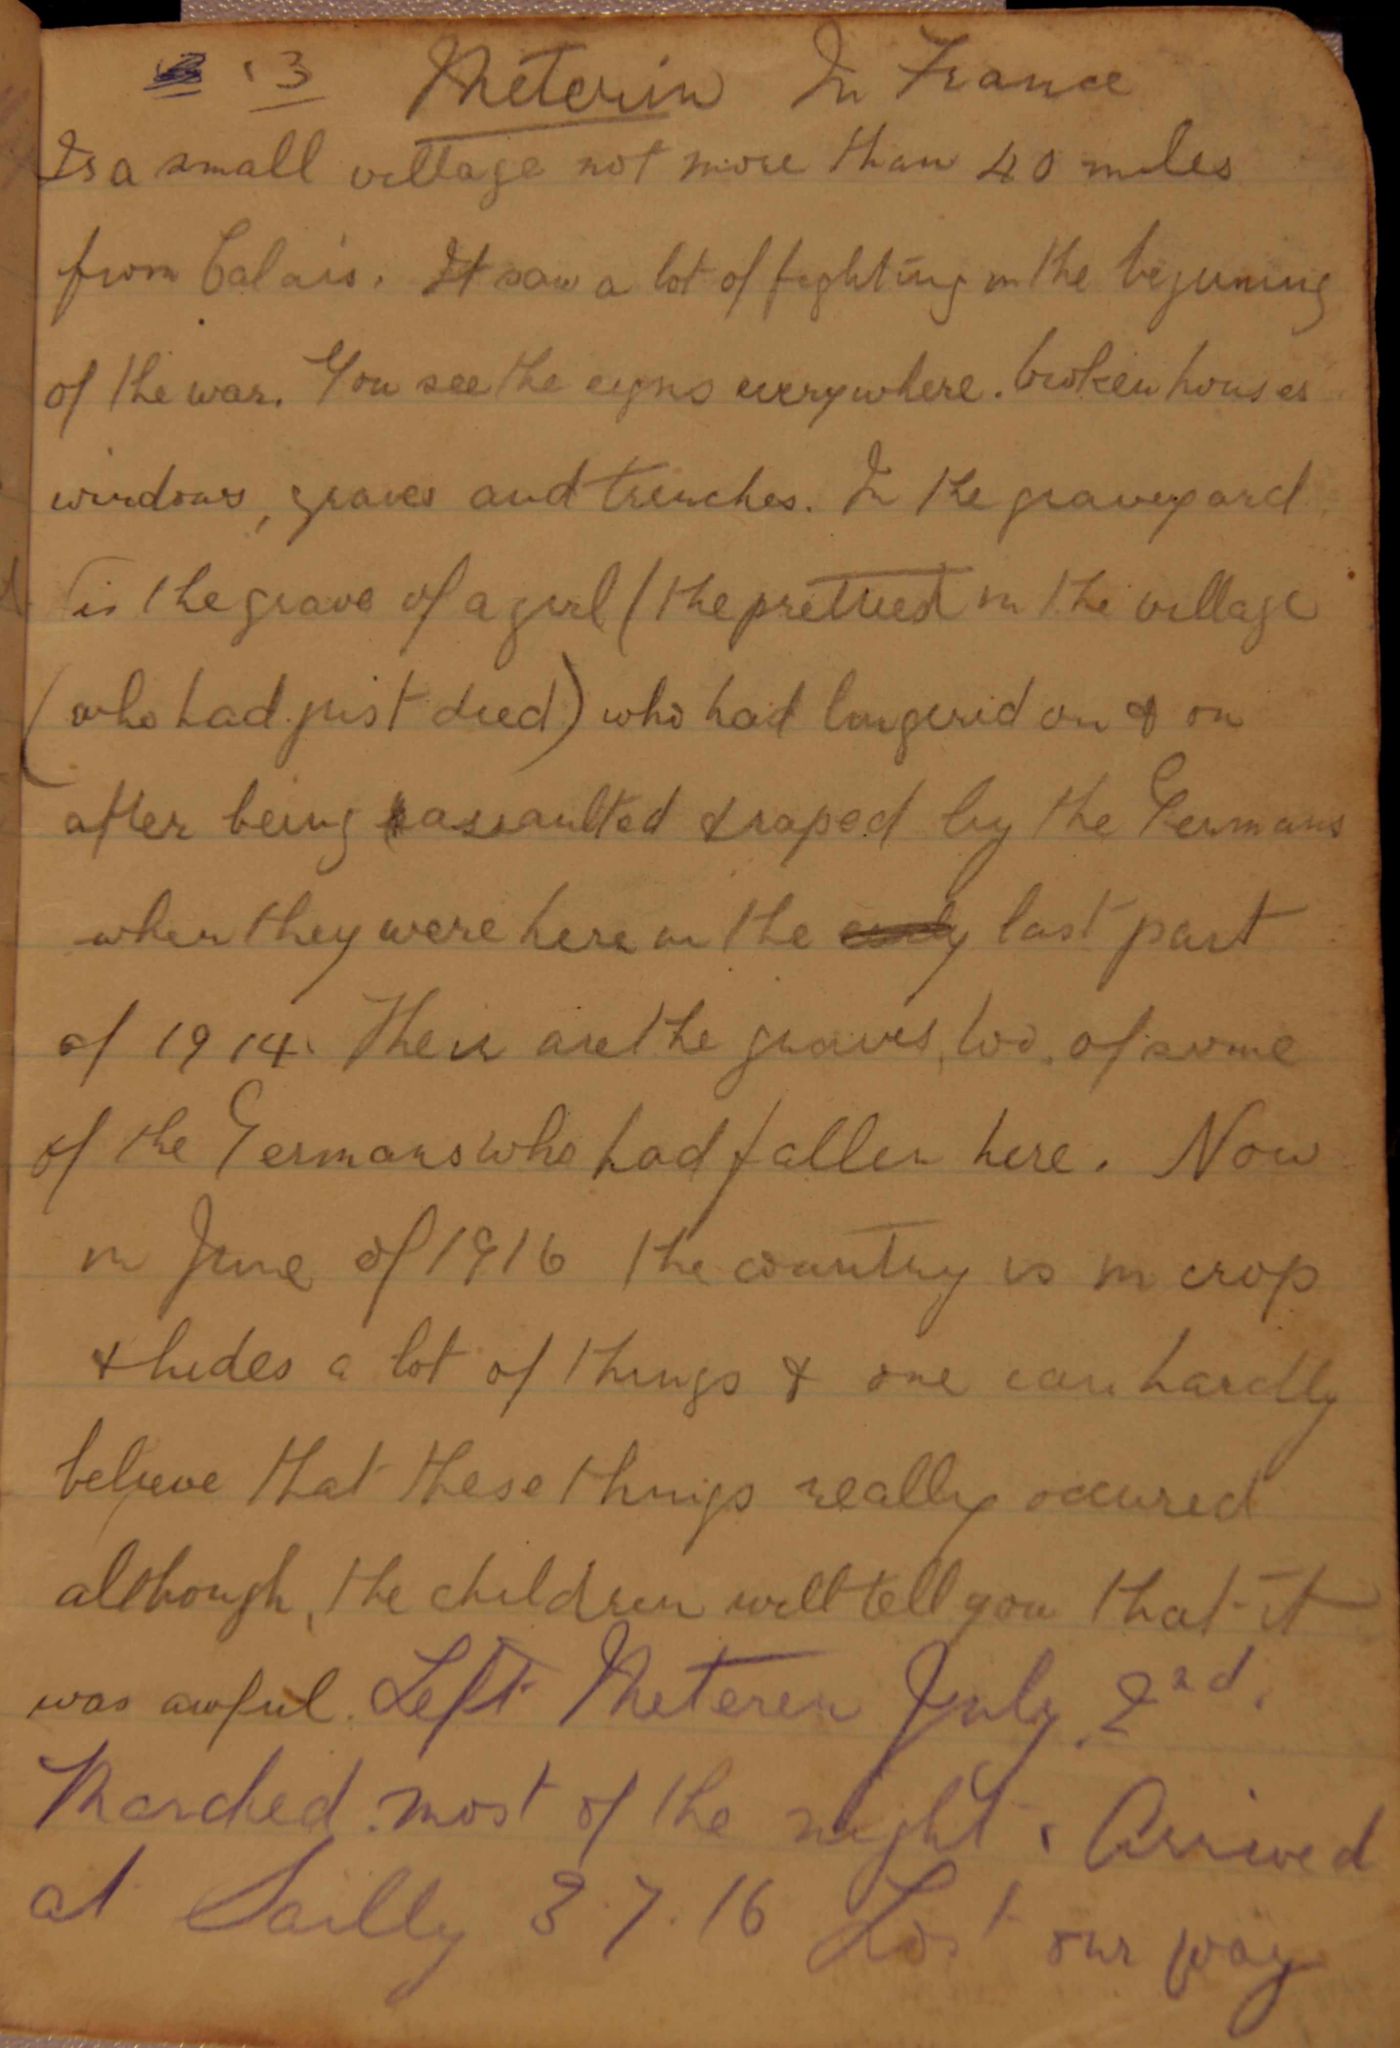 3 Meterin In France
Is a small village not more than 40 miles
from Calais. It saw a lot of fighting in the beginning
of the war. You see the signs everywhere. broken houses
windows, graves and trenches. In the graveyard
is the grave of a girl (the prettiest in the village
(who had just died) who had lingered on & on
after being assaulted & raped by the Germans
when they were here in the early last part
of 1914. There are the graves, too, of some
of the Germans who had fallen here. Now
in June of 1916 the country is in crop
& hides a lot of things & one can hardly
believe that these things really occured
although, the children will tell you that it
was awful. Left Meteren July 2nd.
Marched most of the night. Arrived
at Sailly 3.7.16 Lost our way